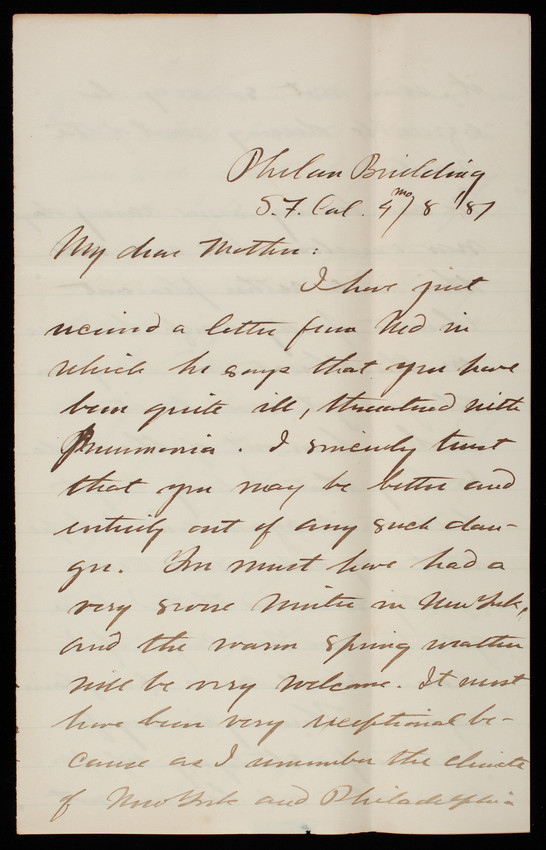 Phelan Building
S. F. Cal. 4mo/8 '87
My dear Mother:
I have just
received a letter from Ned in
which he says that you have
been quite ill, threatened with
Pneumonia. I sincerely trust
that you may be better and
entirely out of any such dan-
ger. You must have had a
very severe winter in New York,
and the warm spring weather
will be very welcome. It must
have been very exceptional be-
cause as I remember the climate
of New York and Philadelphia